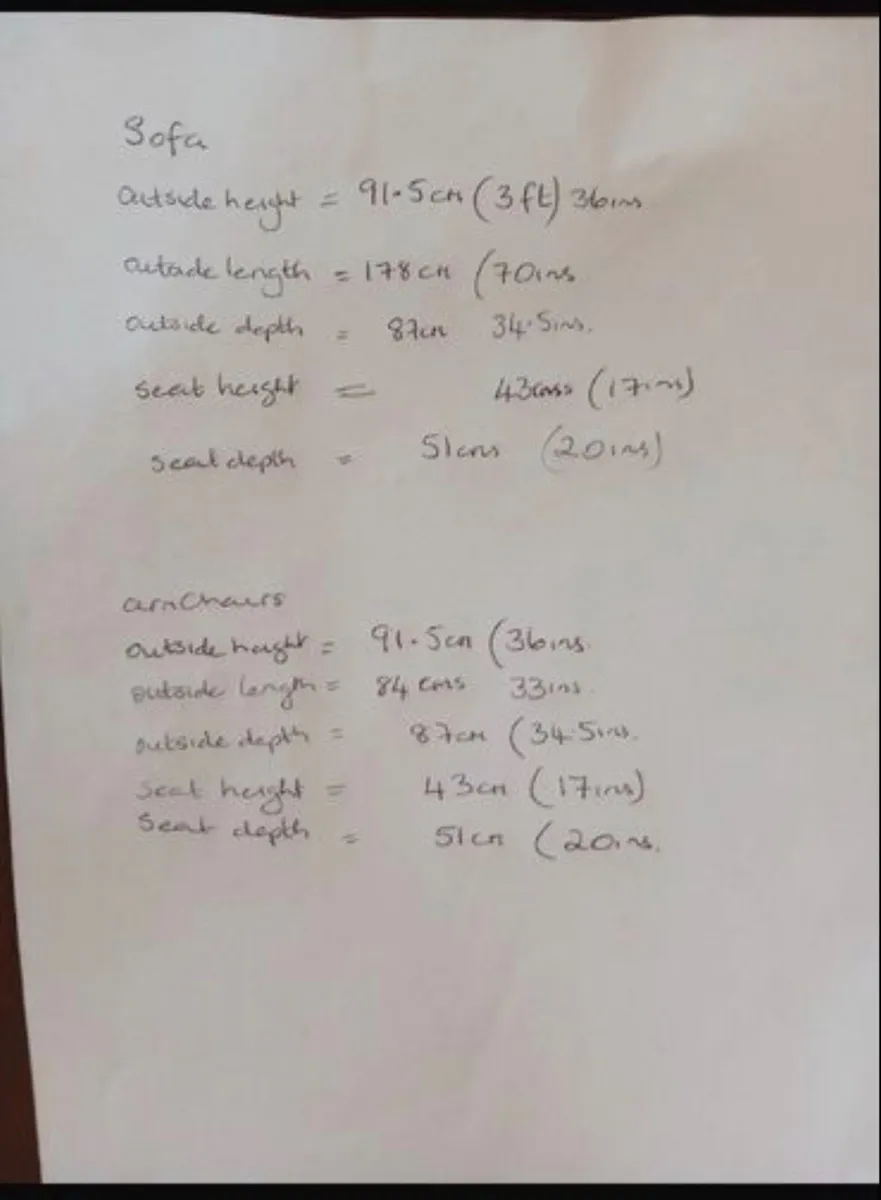 Sofa
outside height = 91.5cm (3ft) 36ins
outside length = 178cm (70ins
outside depth = 87cm 34.5ins.
seat height = 43cms (17ins)
seat depth = 51cms (20ins)
armchairs
outside height = 91.5cm (36ins.
outside length = 84cms 33ins.
outside depth = 87cm (34.5ins.
seat height = 43cm (17ins)
Seat depth = 51cm (20ins.